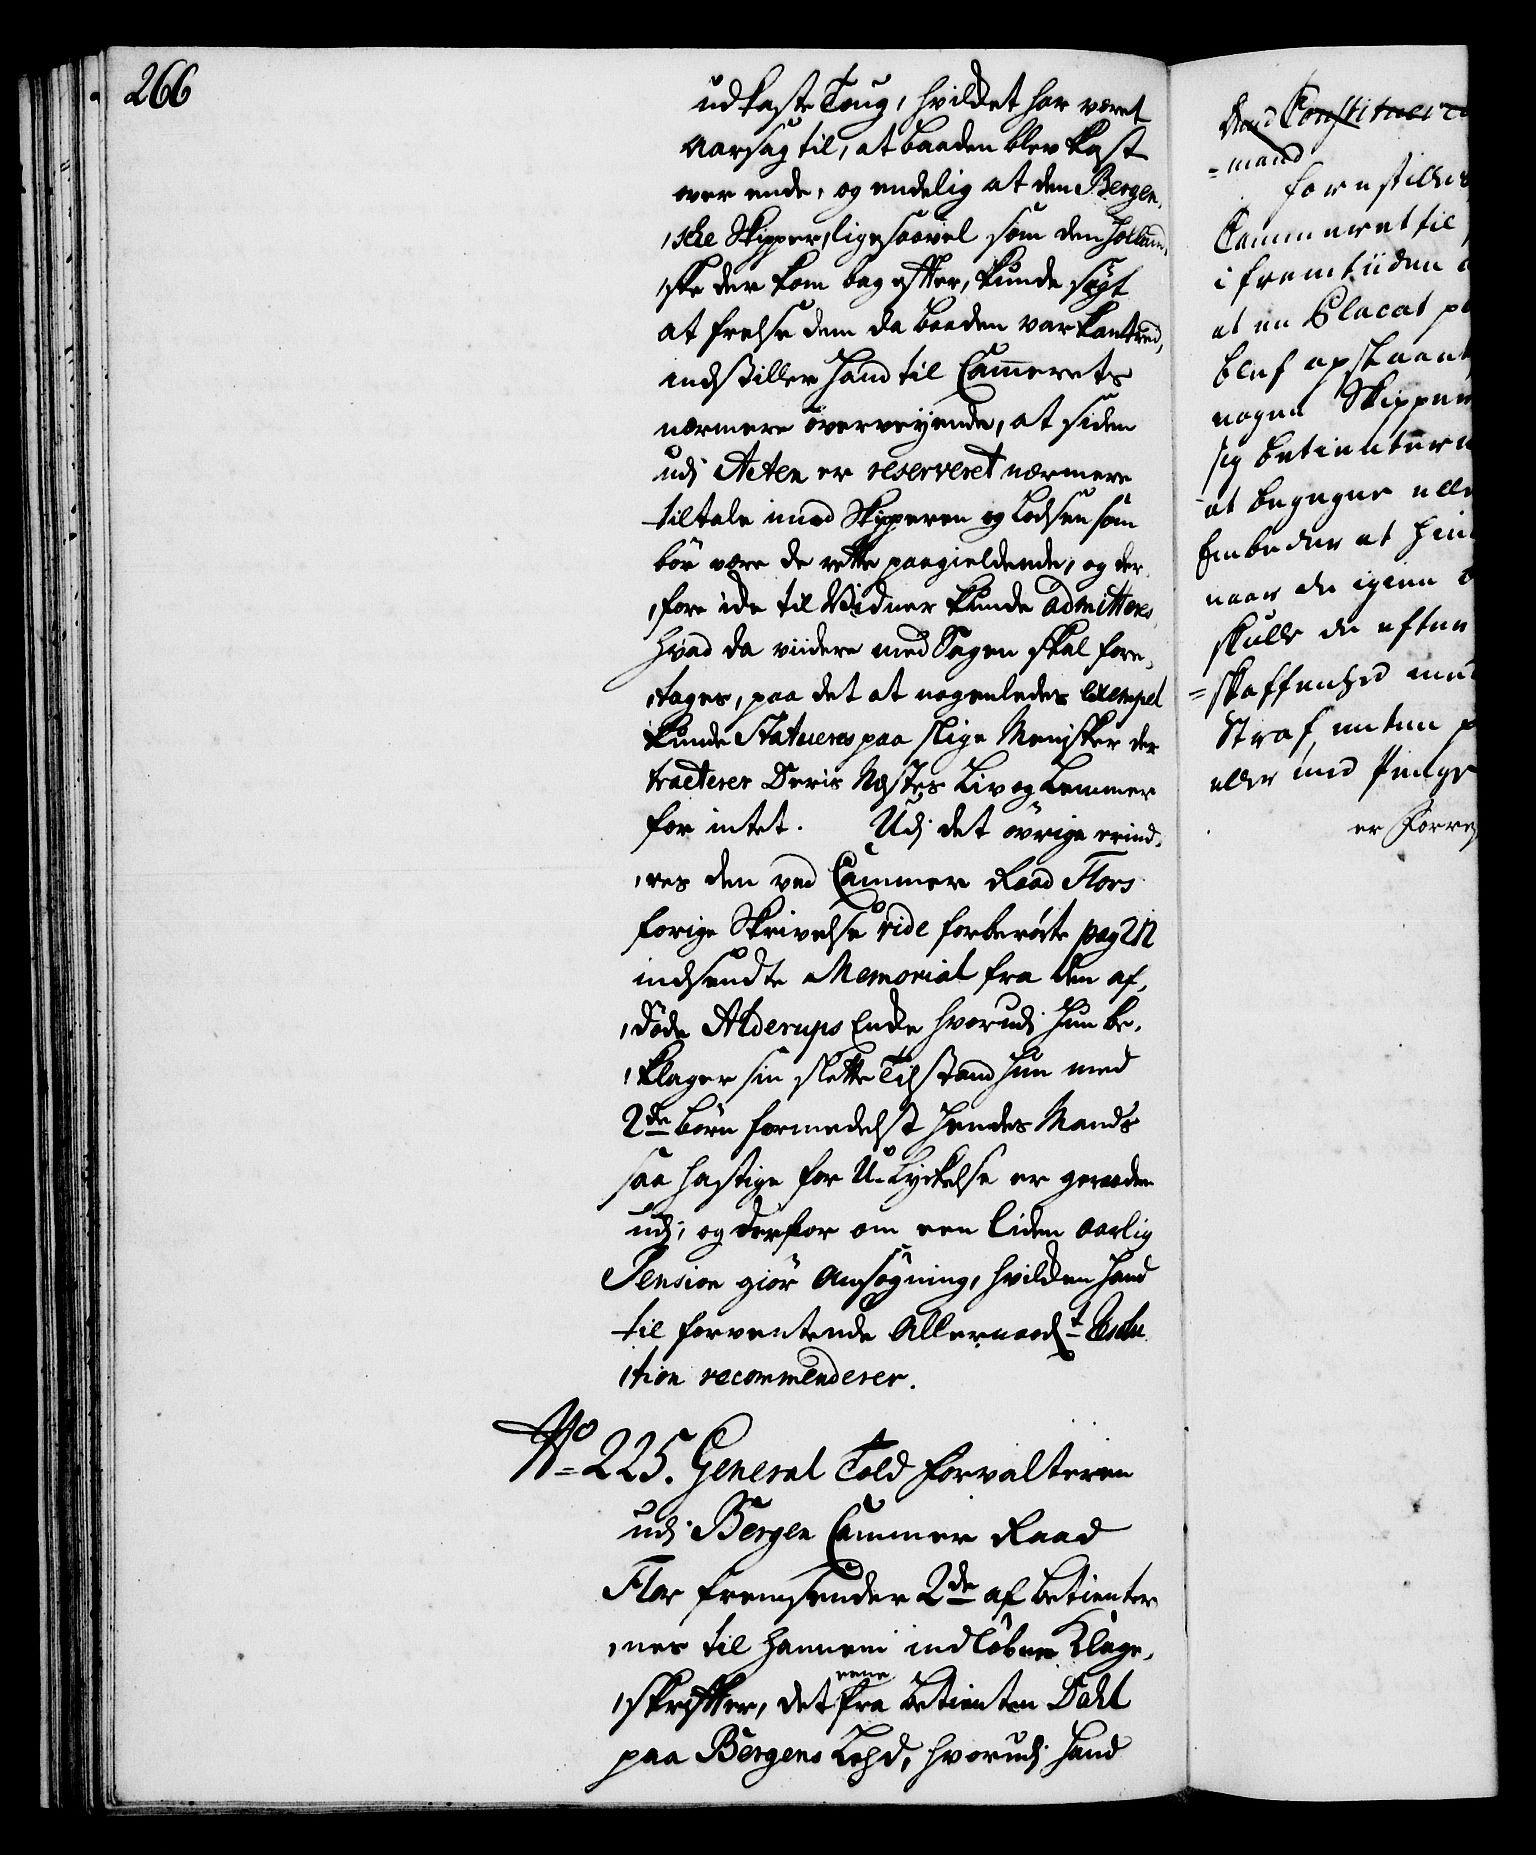 266
udkaste Toug, hvilket har været
Aarsag til, at baaden blev kast
over ende, og endelig at den Bergen,
,ske Skipper, ligesaavel som den Holland,
,ske der kom bag efter, kunde søgt
at frelse dem da baaden var kantred,
indstiller Hand til Cammerets
nærmere överveyende, at siden
udj Acten er reserveret nærmere
tiltale imod Skipperen og Lodsen som
bör være de rette paagieldende, og der,
,fore icke til Vidner kunde admitteres,
hvad da viidere med Sagen skal fore,
,tages, paa det at nogenledes exempel
kunde Statueres paa slige Mennisker der
tracterer Deris Næstes Liv og Lemmer
for intet. Udj det övrige erind,
,res den ved Cammer Raad Flors
forige Skrivelse vide forberörte pag 212
indsendte Memorial fra den af,
,döde Alderups Encke hvorudj Hun be,
,klager sin slette Tilstand Hun med
2de börn formedelst Hendes Mands
saa hastige for U-Lyckelse er geraaden
udj, og derfor om een liden aarlig
Pension giör Ansögning, hvilcken Hand
til forventende Allernaadst Resolu
,tion recommenderer.
No 225. General Told Forvalteren
udj Bergen Cammer Raad
Flor fremsender 2de af betienter
,nes til Hannem indlöbne Klage,
,skrifter, det eene fra betienten Dahl
paa Bergens Told, hvorudj Hand
Constituer
=mand
forestilles
Cammeret til
i fremtiiden
at en Placat
blef opslaaet
nogen Skipper
sig betienter
at begegne elle
Embeder at hin
naar de igien
skulle de efter
=skaffenhed med
Straf enten p
eller med Penge
er